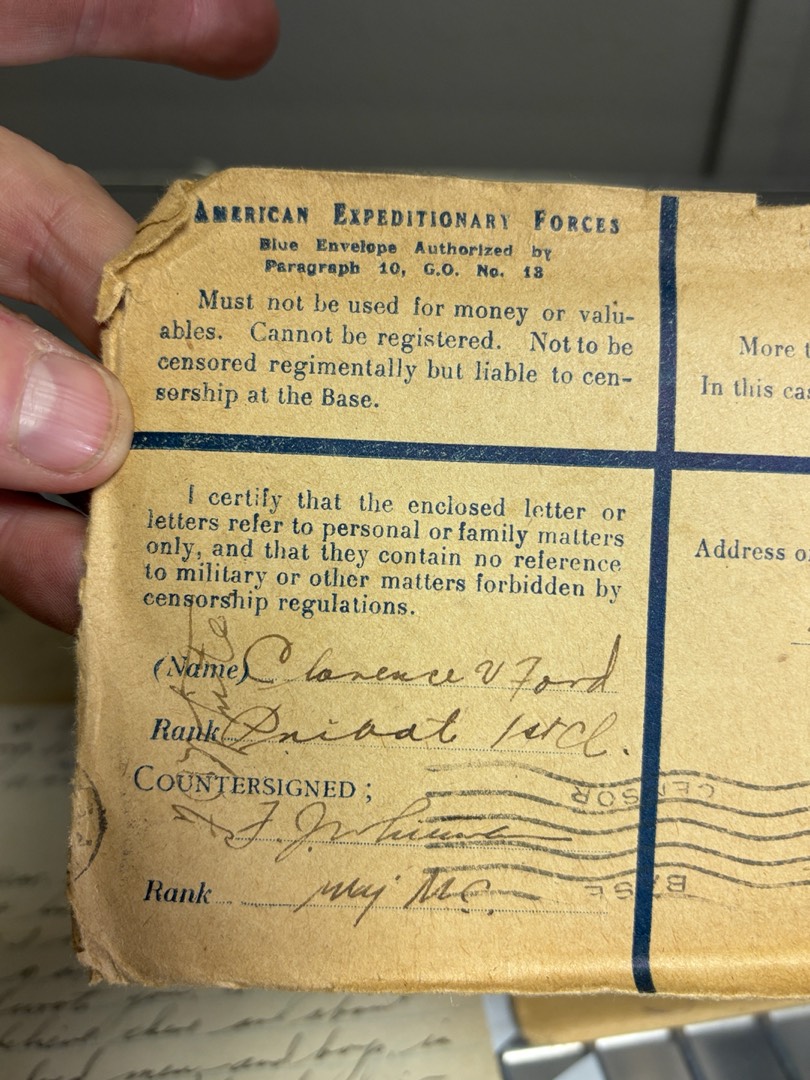 AMERICAN EXPEDITIONARY FORCES
Blue Envelope Authorized by
Paragraph 10, G.O. No. 18
Must not be used for money or valu-
ables. Cannot be registered. Not to be
censored regimentally but liable to cen-
sorship at the Base.
More t
In this cas
I certify that the enclosed letter or
letters refer to personal or family matters
only, and that they contain no reference
to military or other matters forbidden by
censorship regulations.
Address o
(Name) Clarence V Ford
Rank Privat 1st Cl.
COUNTERSIGNED ;
CENSOR
Rank Maj M.C.
BASE